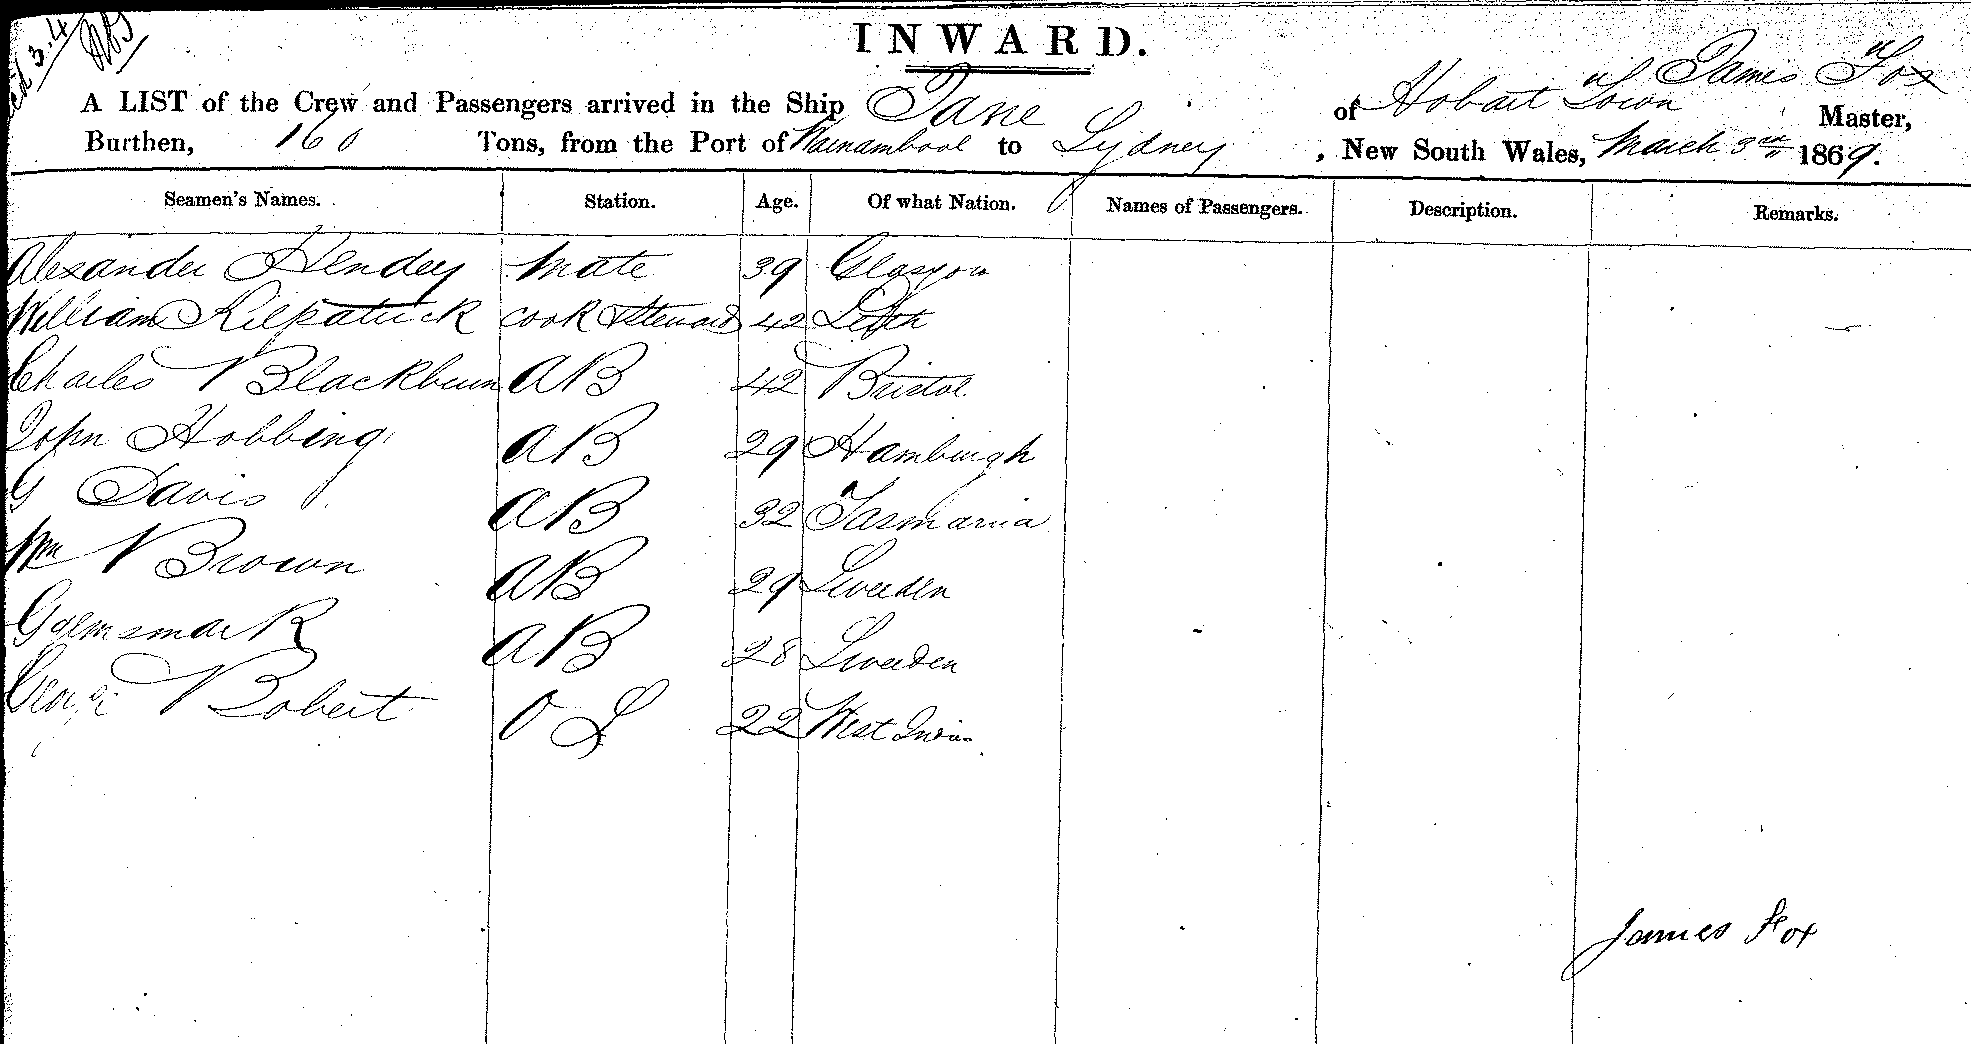 INWARD.
A LIST of the Crew and Passengers arrived in the Ship Jane of Hobart Town James Fox Master,
Burthen, 160 Tons, from the Port of Warnambool to Sydney, New South Wales, March 3rd 1869.
Seamen's Names. Station. Age. Of what Nation. Names of Passengers. Description. Remarks.
Alexander Hendey Mate 39 Glasgow
William Kilpatrick cook & Steward 42 Leith
Charles Blackburn AB 42 Bristol
John Hobbing AB 29 Hamburgh
G Davis AB 32 Tasmania
Wm Brown AB 29 Sweeden
AB 28 Sweeden
George Robert O S 22 West
James Fox